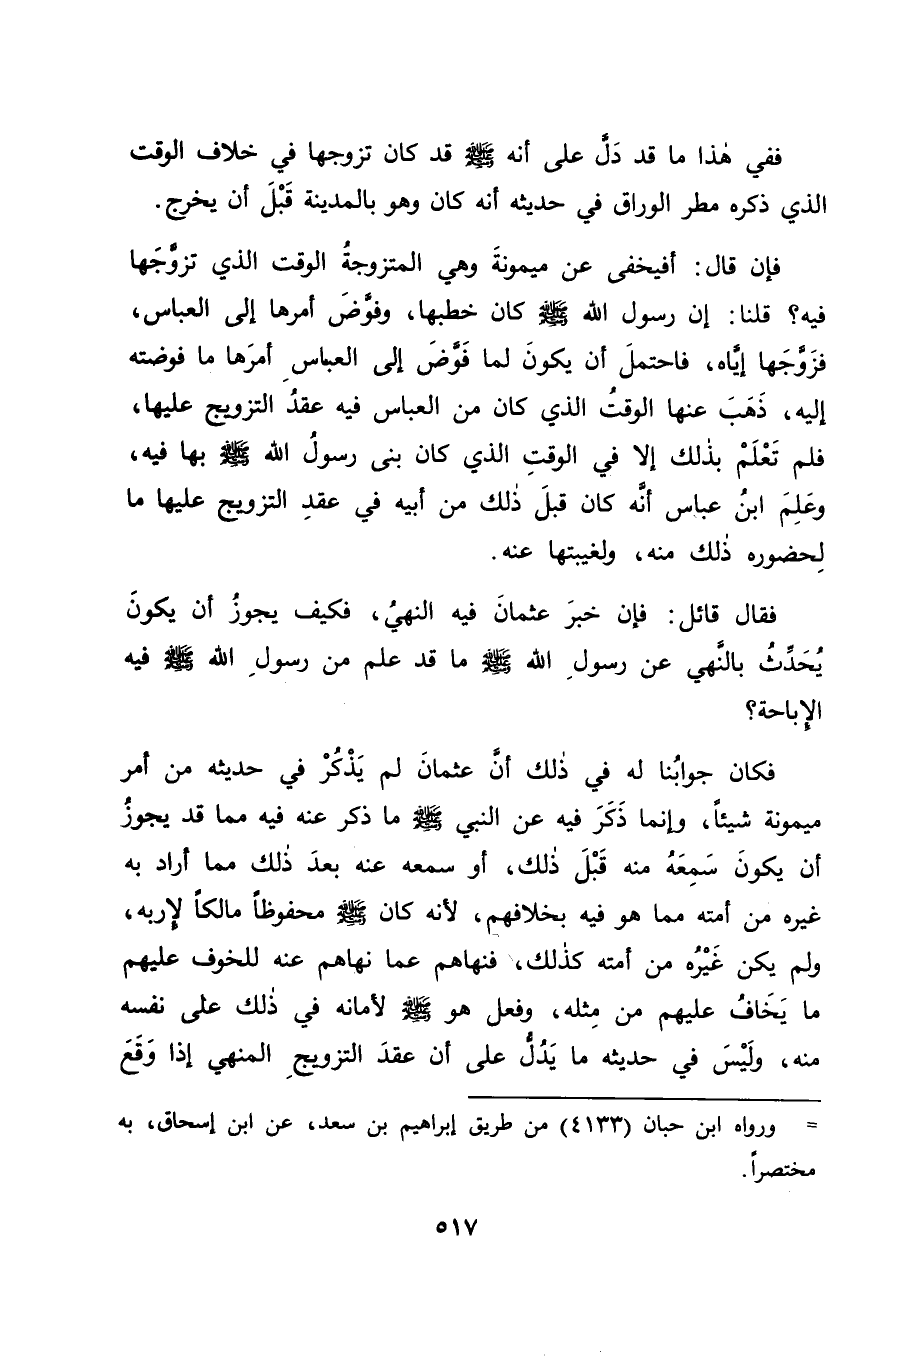 ففي هٰذا ما قد دَلَّ على أنه ﷺ قد كان تزوجها في خلاف الوقت
الذي ذكره مطر الوراق في حديثه أنه كان وهو بالمدينة قَبْلَ أن يخرج.
فإن قال: أفيخفى عن ميمونةَ وهي المتزوجةُ الوقت الذي تزوَّجَها
فيه؟ قلنا: إن رسول الله ﷺ كان خطبها، وفوَّضَ أمرها إلى العباس،
فزَوَّجَها إيَّاه، فاحتملَ أن يكونَ لما فَوَّضَ إلى العباسِ أمرَها ما فوضته
إليه، ذَهَبَ عنها الوقتُ الذي كان من العباس فيه عقدُ التزويج عليها،
فلم تَعْلَمْ بذٰلك إلا في الوقتِ الذي كان بنى رسولُ الله ﷺ بها فيه،
وعَلِمَ ابنُ عباس أنَّه كان قبلَ ذٰلك من أبيه في عقدِ التزويج عليها ما
لِحضوره ذٰلك منه، ولغيبتها عنه.
فقال قائل: فإن خبرَ عثمانَ فيه النهيُ، فكيف يجوزُ أن يكونَ
يُحَدِّثُ بالنَّهي عن رسولِ الله ﷺ ما قد علم من رسولِ الله ﷺ فيه
الإِباحة؟
فكان جوابُنا له في ذٰلك أنَّ عثمانَ لم يَذْكُرْ في حديثه من أمر
ميمونة شيئاً، وإنما ذَكَرَ فيه عن النبي ﷺ ما ذكر عنه فيه مما قد يجوزُ
أن يكونَ سَمِعَهُ منه قَبْلَ ذٰلك، أو سمعه عنه بعدَ ذٰلك مما أراد به
غيره من أمته مما هو فيه بخلافهم، لأنه كان ﷺ محفوظاً مالكاً لإِربه،
ولم يكن غَيْرُه من أمته كذٰلك، فنهاهم عما نهاهم عنه للخوف عليهم
ما يَخَافُ عليهم من مِثله، وفعل هو ﷺ لأمانه في ذٰلك على نفسه
منه، ولَيْسَ في حديثه ما يَدُلُّ على أن عقدَ التزويجِ المنهي إذا وَقَعَ
= ورواه ابن حبان (٤١٣٣) من طريق إبراهيم بن سعد، عن ابن إسحاق، به
مختصراً.
٥١٧